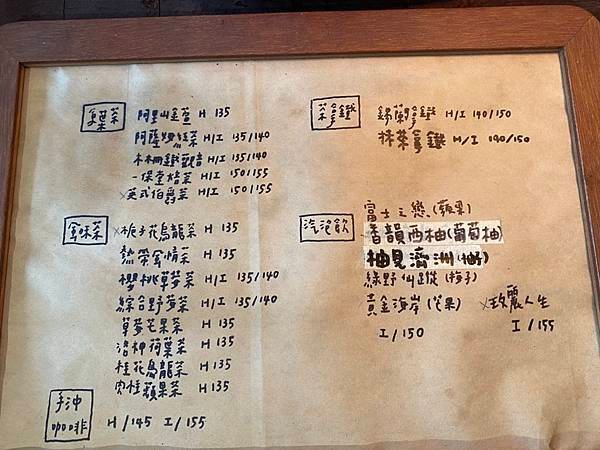 原葉茶
阿里山金萱 H 135
阿薩姆紅茶 H/I 135/140
木柵鐵觀音 H/I 135/140
一保堂焙茶 H/I 150/155
x英式伯爵茶 H/I 150/155
茶拿鐵
錫蘭拿鐵 H/I 140/150
抹茶拿鐵 H/I 140/150
x梔子花烏龍茶 H 135
熱帶風情茶 H 135
櫻桃草莓茶 H/I 135/140
綜合野莓茶 H/I 135/140
草莓芒果茶 H 135
洛神荷葉茶 H 135
桂花烏龍茶 H 135
肉桂蘋果茶 H 135
汽泡飲
富士之戀(蘋果)
香韻西柚(葡萄柚)
柚見濟洲(柚子)
綠野仙蹤(梅子)
黃金海岸(芒果)
x玫麗人生
I/150
I/155
手沖
咖啡
H/145 I/155